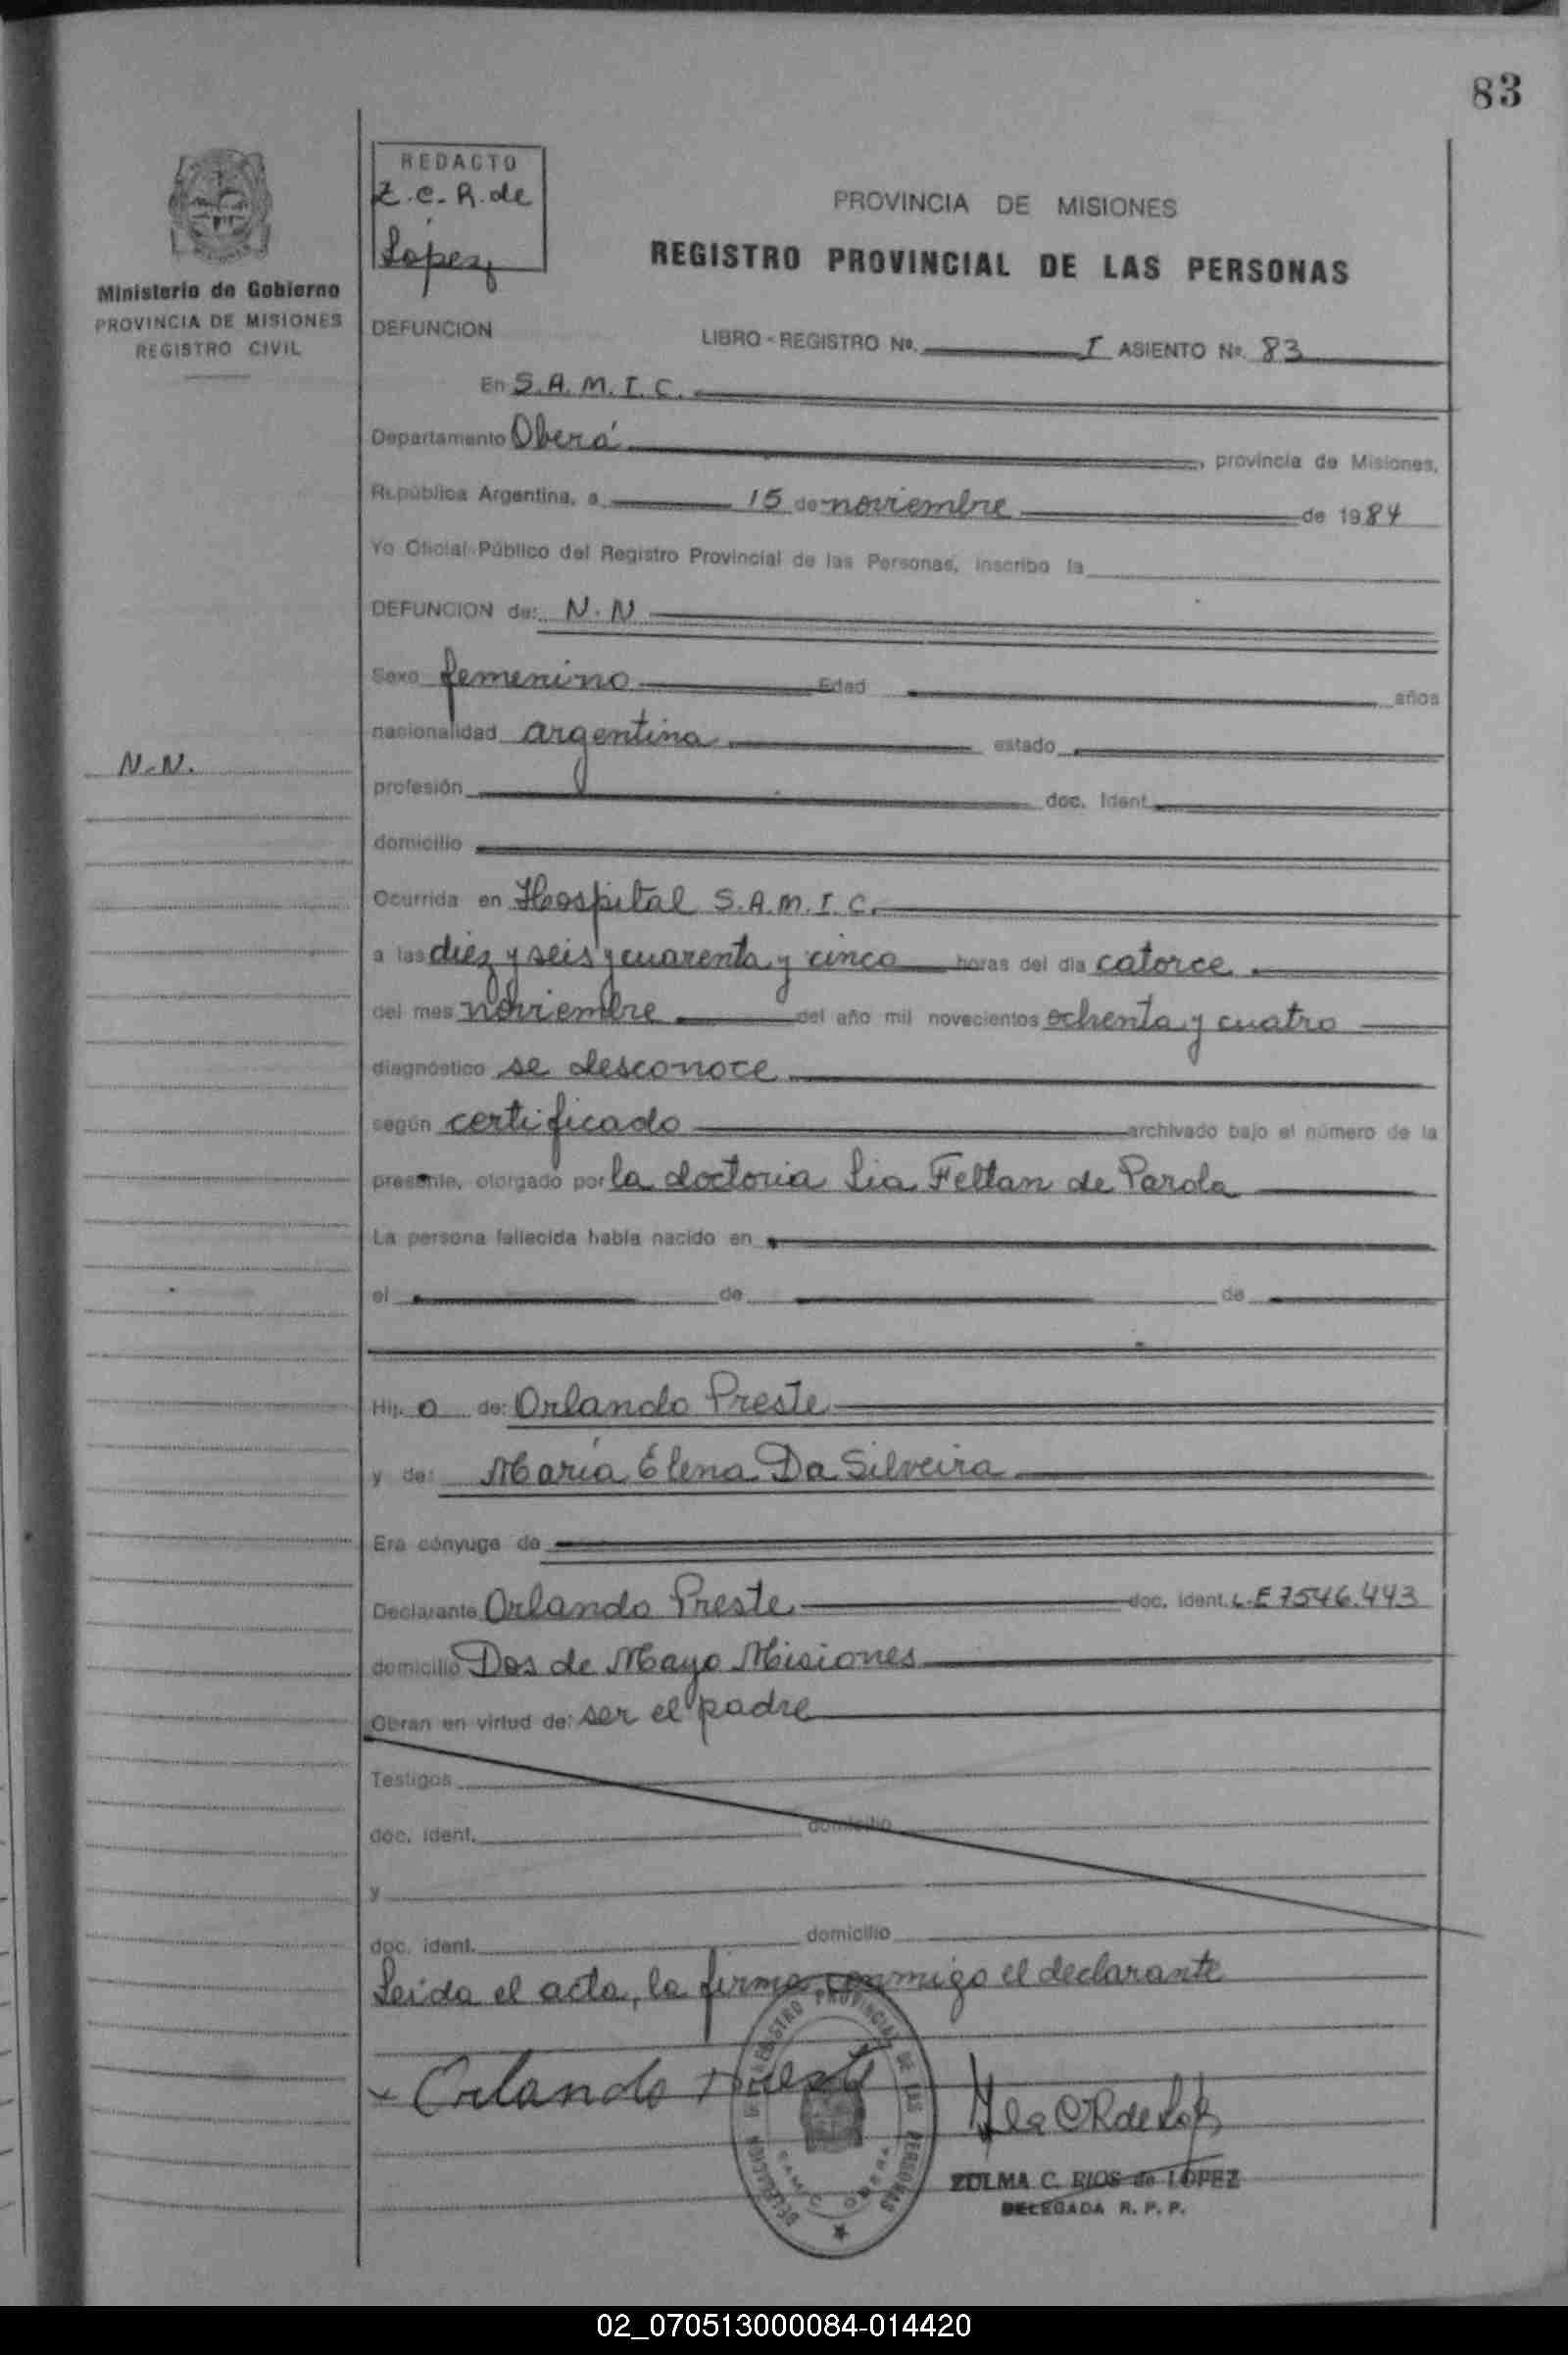 83
REDACTO
Z.C.R. de
López
PROVINCIA DE MISIONES
REGISTRO PROVINCIAL DE LAS PERSONAS
Ministerio de Gobierno
PROVINCIA DE MISIONES
REGISTRO CIVIL
DEFUNCION
LIBRO - REGISTRO Nº. I ASIENTO Nº. 83
En S.A.M.I.C.
Departamento Oberá, provincia de Misiones,
República Argentina, a 15 de noviembre de 1984
Yo Oficial Público del Registro Provincial de las Personas, inscribo la
DEFUNCION de: N.N
Sexo femenino Edad años
nacionalidad argentina estado
N.N.
profesión doc. Ident.
domicilio
Ocurrida en Hospital S.A.M.I.C.
a las diez y seis y cuarenta y cinco horas del día catorce
del mes noviembre del año mil novecientos ochenta y cuatro
diagnóstico se desconoce
según certificado archivado bajo el número de la
presente, otorgado por la doctoria Lia Feltan de Parola
La persona fallecida había nacido en
el de de
Hij o de: Orlando Preste
y de: María Elena Da Silveira
Era cónyuge de
Declarante Orlando Preste doc. ident. L.E 7546.443
domicilio Dos de Mayo Misiones
Obran en virtud de: ser el padre
Testigos
doc. ident. domicilio
y
doc. ident. domicilio
Leída el acta, la firma conmigo el declarante
x Orlando Preste
DELEGACION REGISTRO PROVINCIAL DE LAS PERSONAS
SAMIC OBERA
ZULMA C. RIOS de LOPEZ
DELEGADA R. P. P.
02_070513000084-014420